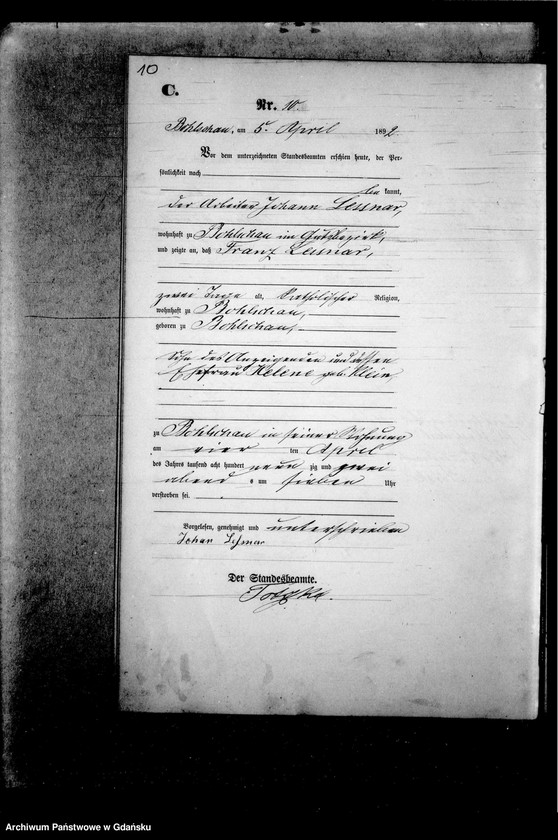 10
C.
Nr. 10.
Bohlschau, am 5. April 1892
Vor dem unterzeichneten Standesbeamten erschien heute, der Per-
sönlichkeit nach
bekannt,
der Arbeiter Johann Lessnar,
wohnhaft zu Bohlschau im Gutsbezirk,
und zeigte an, daß Franz Lessnar,
zwei Tage alt, katholischer Religion,
wohnhaft zu Bohlschau,
geboren zu Bohlschau,
Sohn des Anzeigenden und dessen
Ehefrau Helene geb. Klein,
zu Bohlschau in seiner Wohnung
am vier ten April
des Jahrs tausend acht hundert neun zig und zwei
abend s um sieben Uhr
verstorben sei.
Vorgelesen, genehmigt und unterschrieben
Johan
Der Standesbeamte.
Archiwum Państwowe w Gdańsku